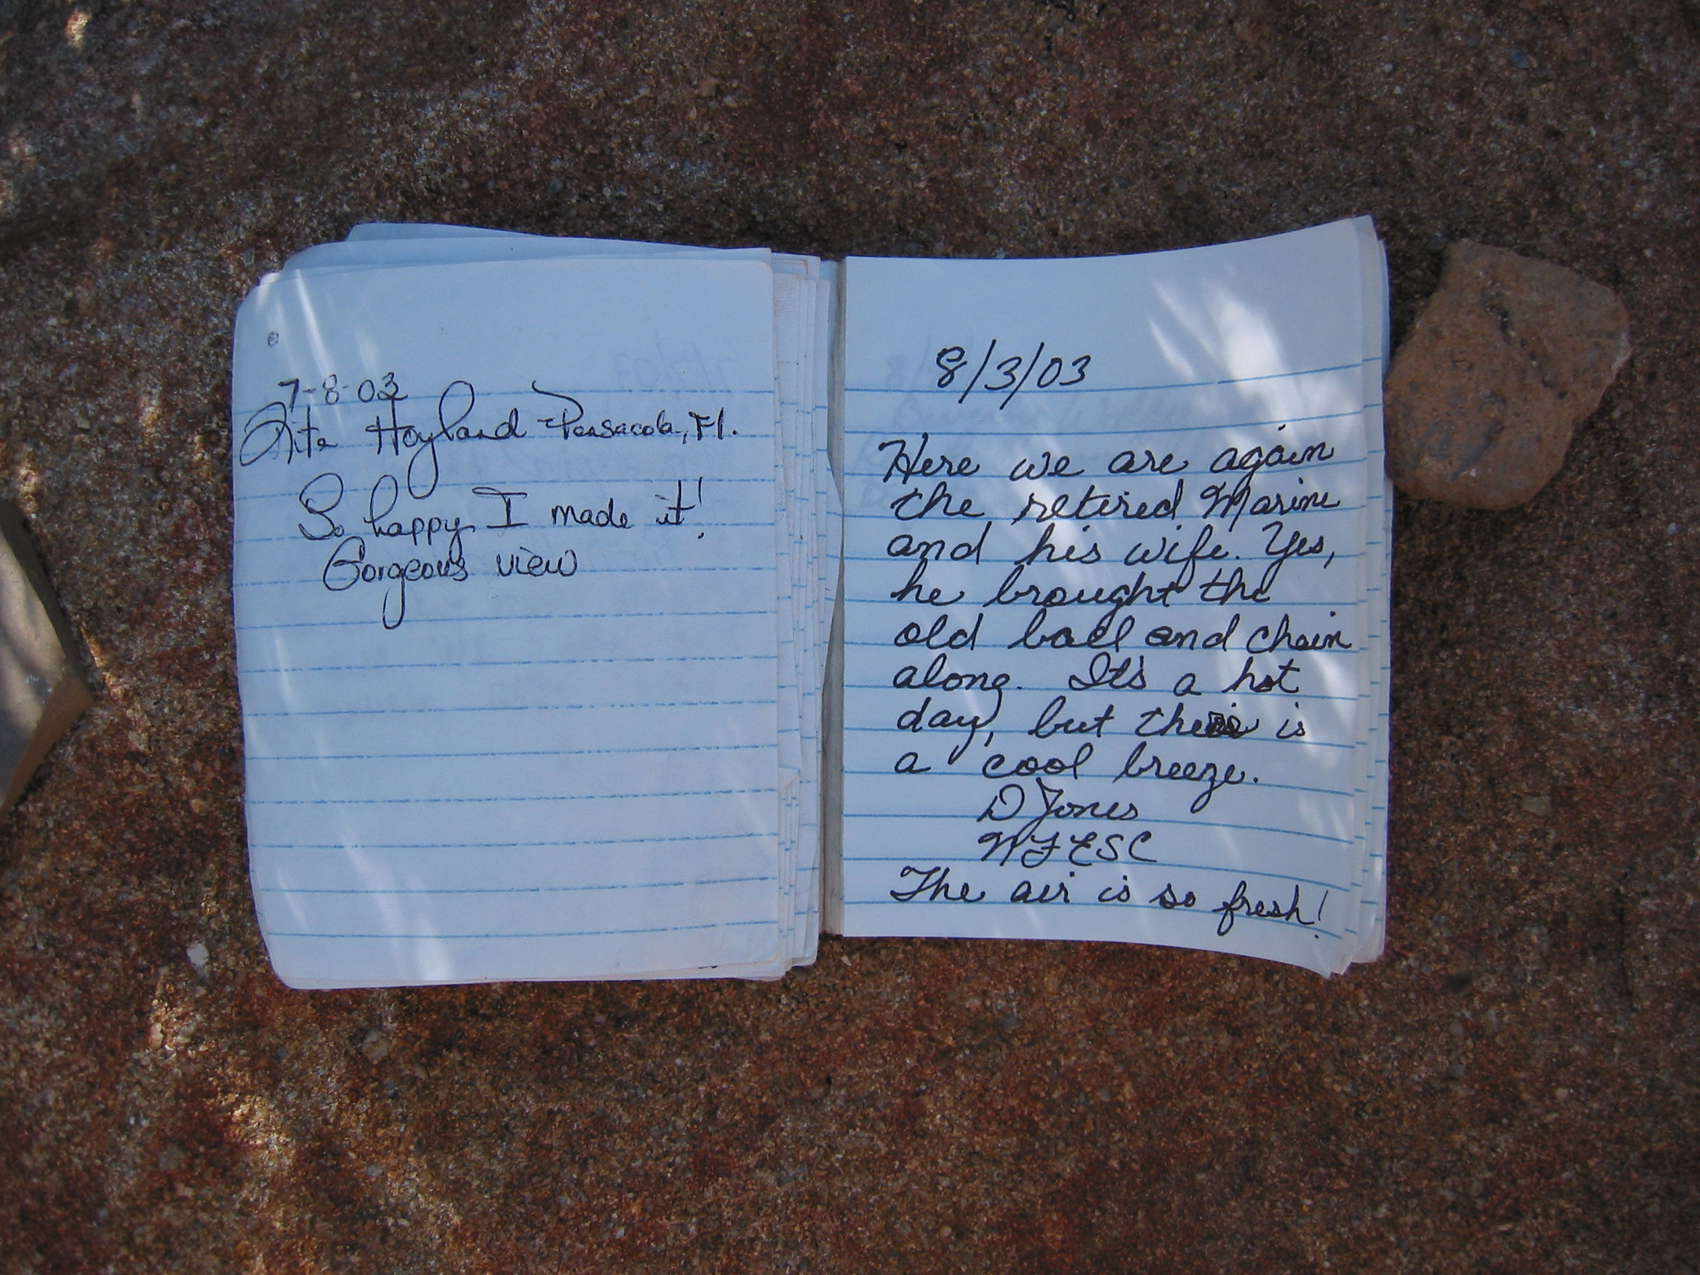 7-8-03
Rita Hoyland - Pensacola, Fl.
So happy I made it!
Gorgeous view
8/3/03
Here we are again
the retired Marine
and his wife. Yes,
he brought the
old ball and chain
along. It's a hot
day, but there is
a cool breeze.
D Jones
WFESC
The air is so fresh!